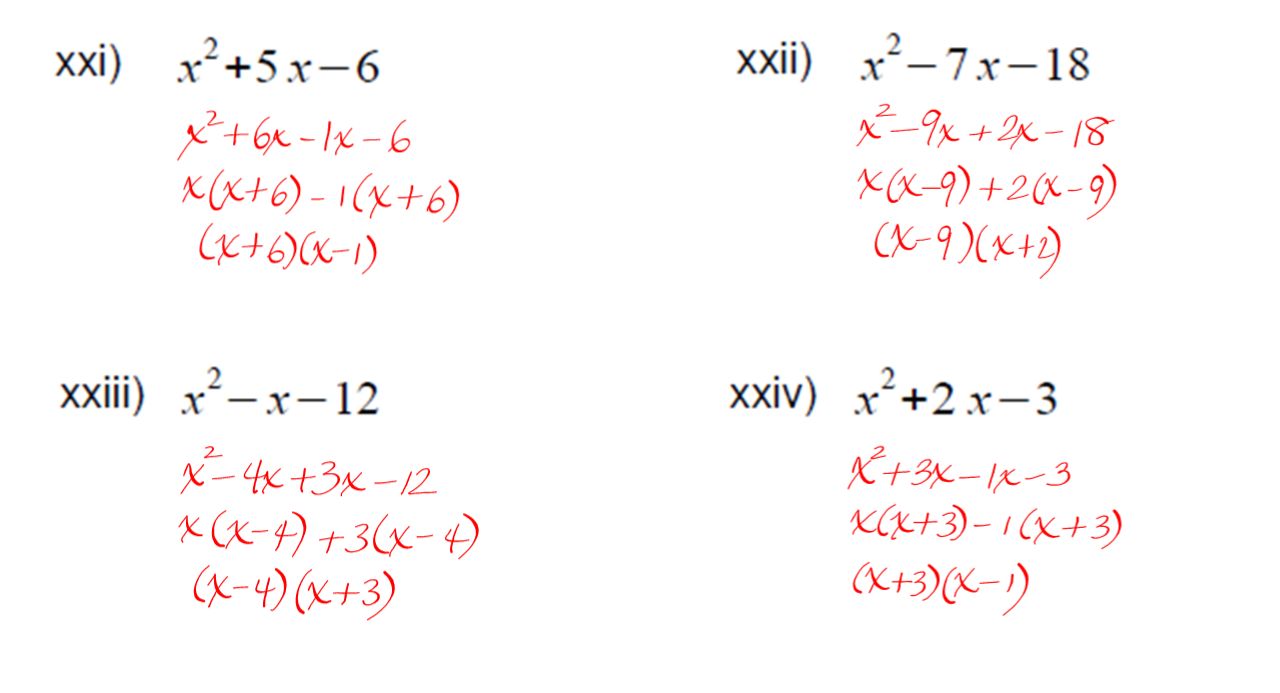 xxi) x²+5x−6
x²+6x−1x−6
x(x+6)−1(x+6)
(x+6)(x−1)
xxii) x²−7x−18
x²−9x+2x−18
x(x−9)+2(x−9)
(x−9)(x+2)
xxiii) x²−x−12
x²−4x+3x−12
x(x−4)+3(x−4)
(x−4)(x+3)
xxiv) x²+2x−3
x²+3x−1x−3
x(x+3)−1(x+3)
(x+3)(x−1)